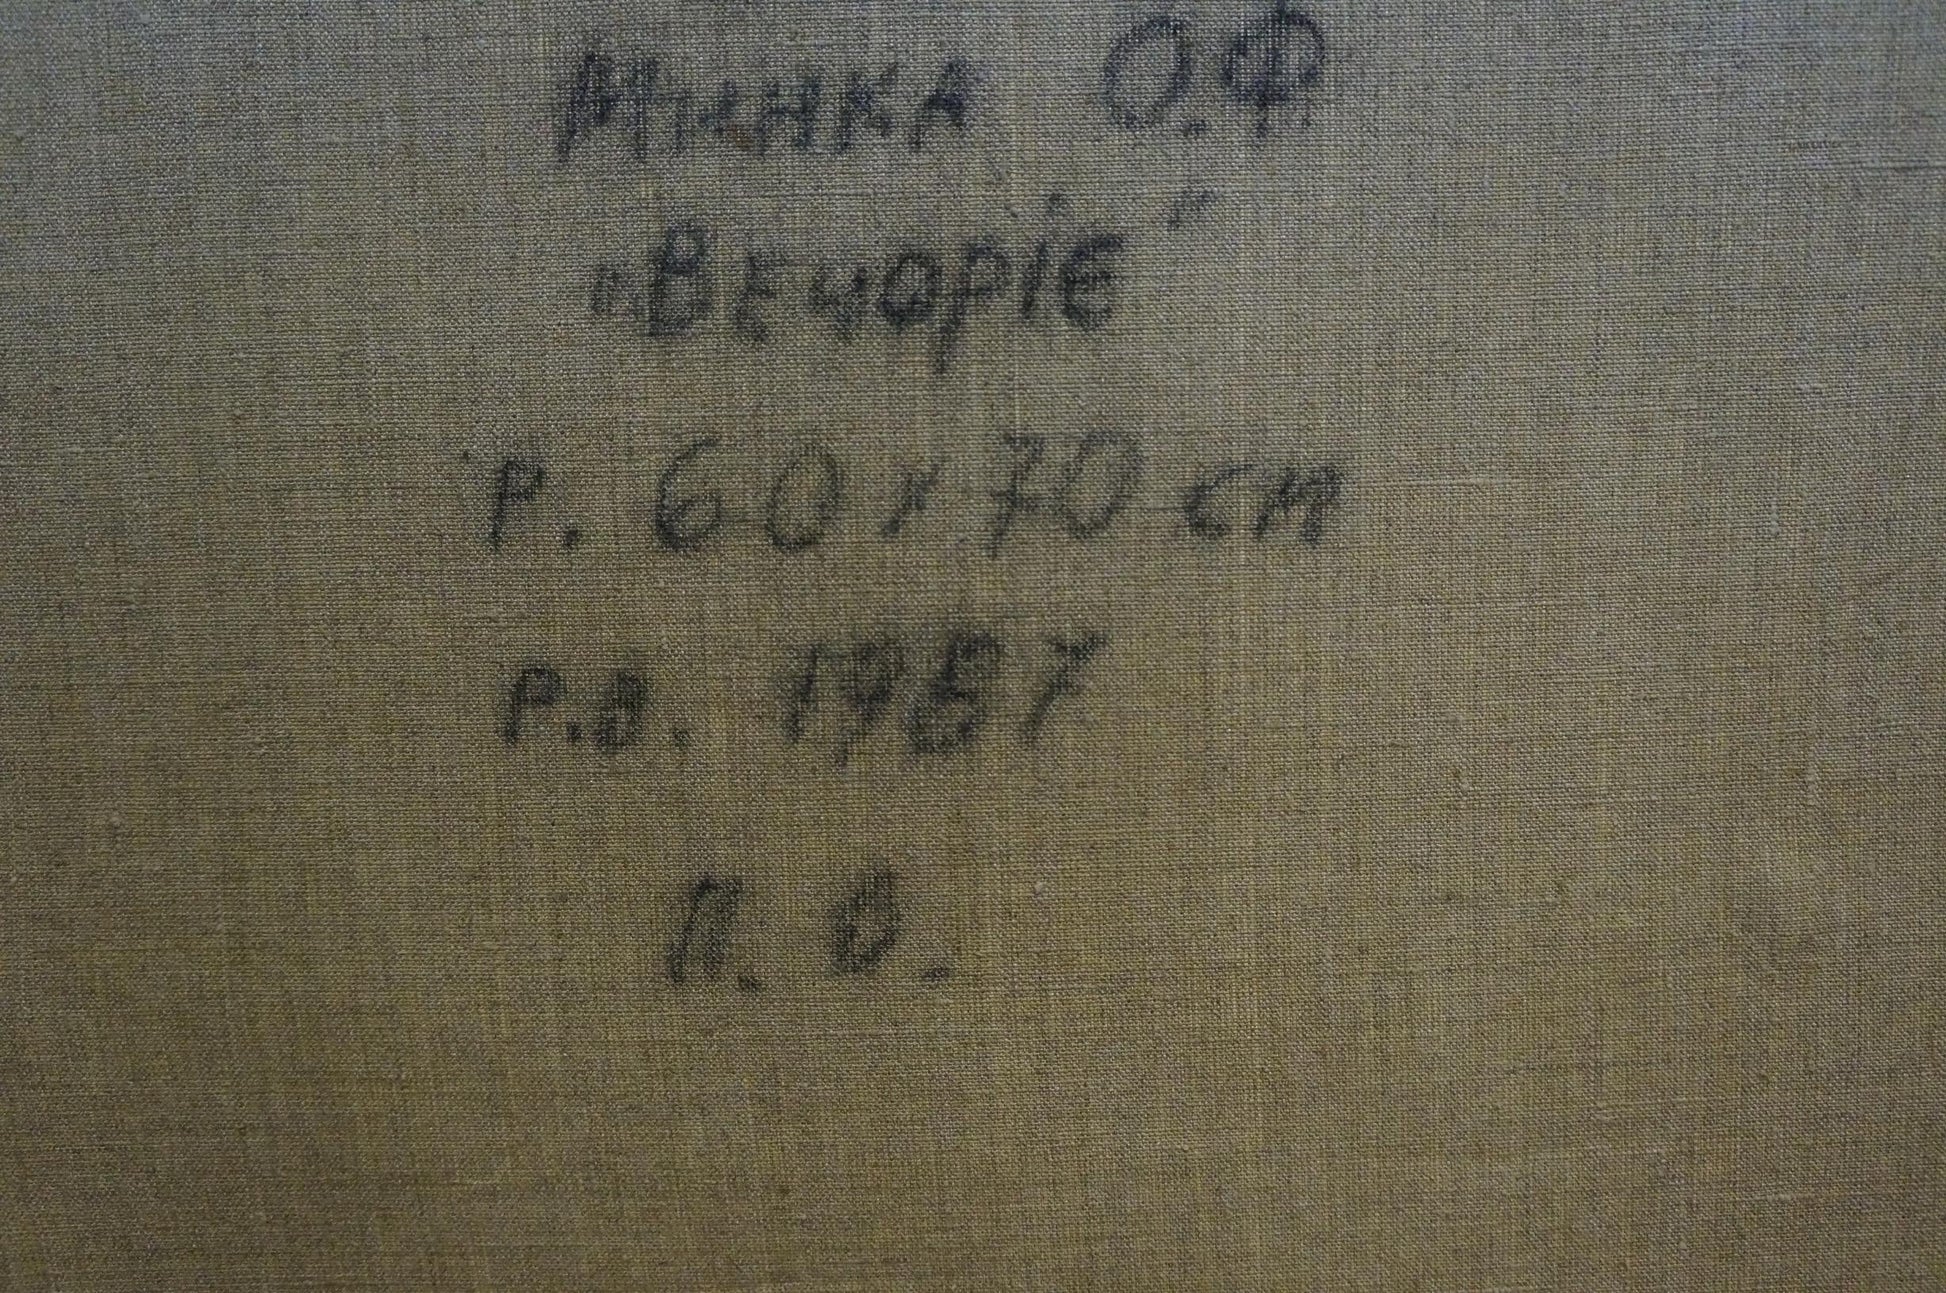 Минка О.Ф.
"Вечоріє"
Р. 60х70 см
Р.В. 1987
П. О.